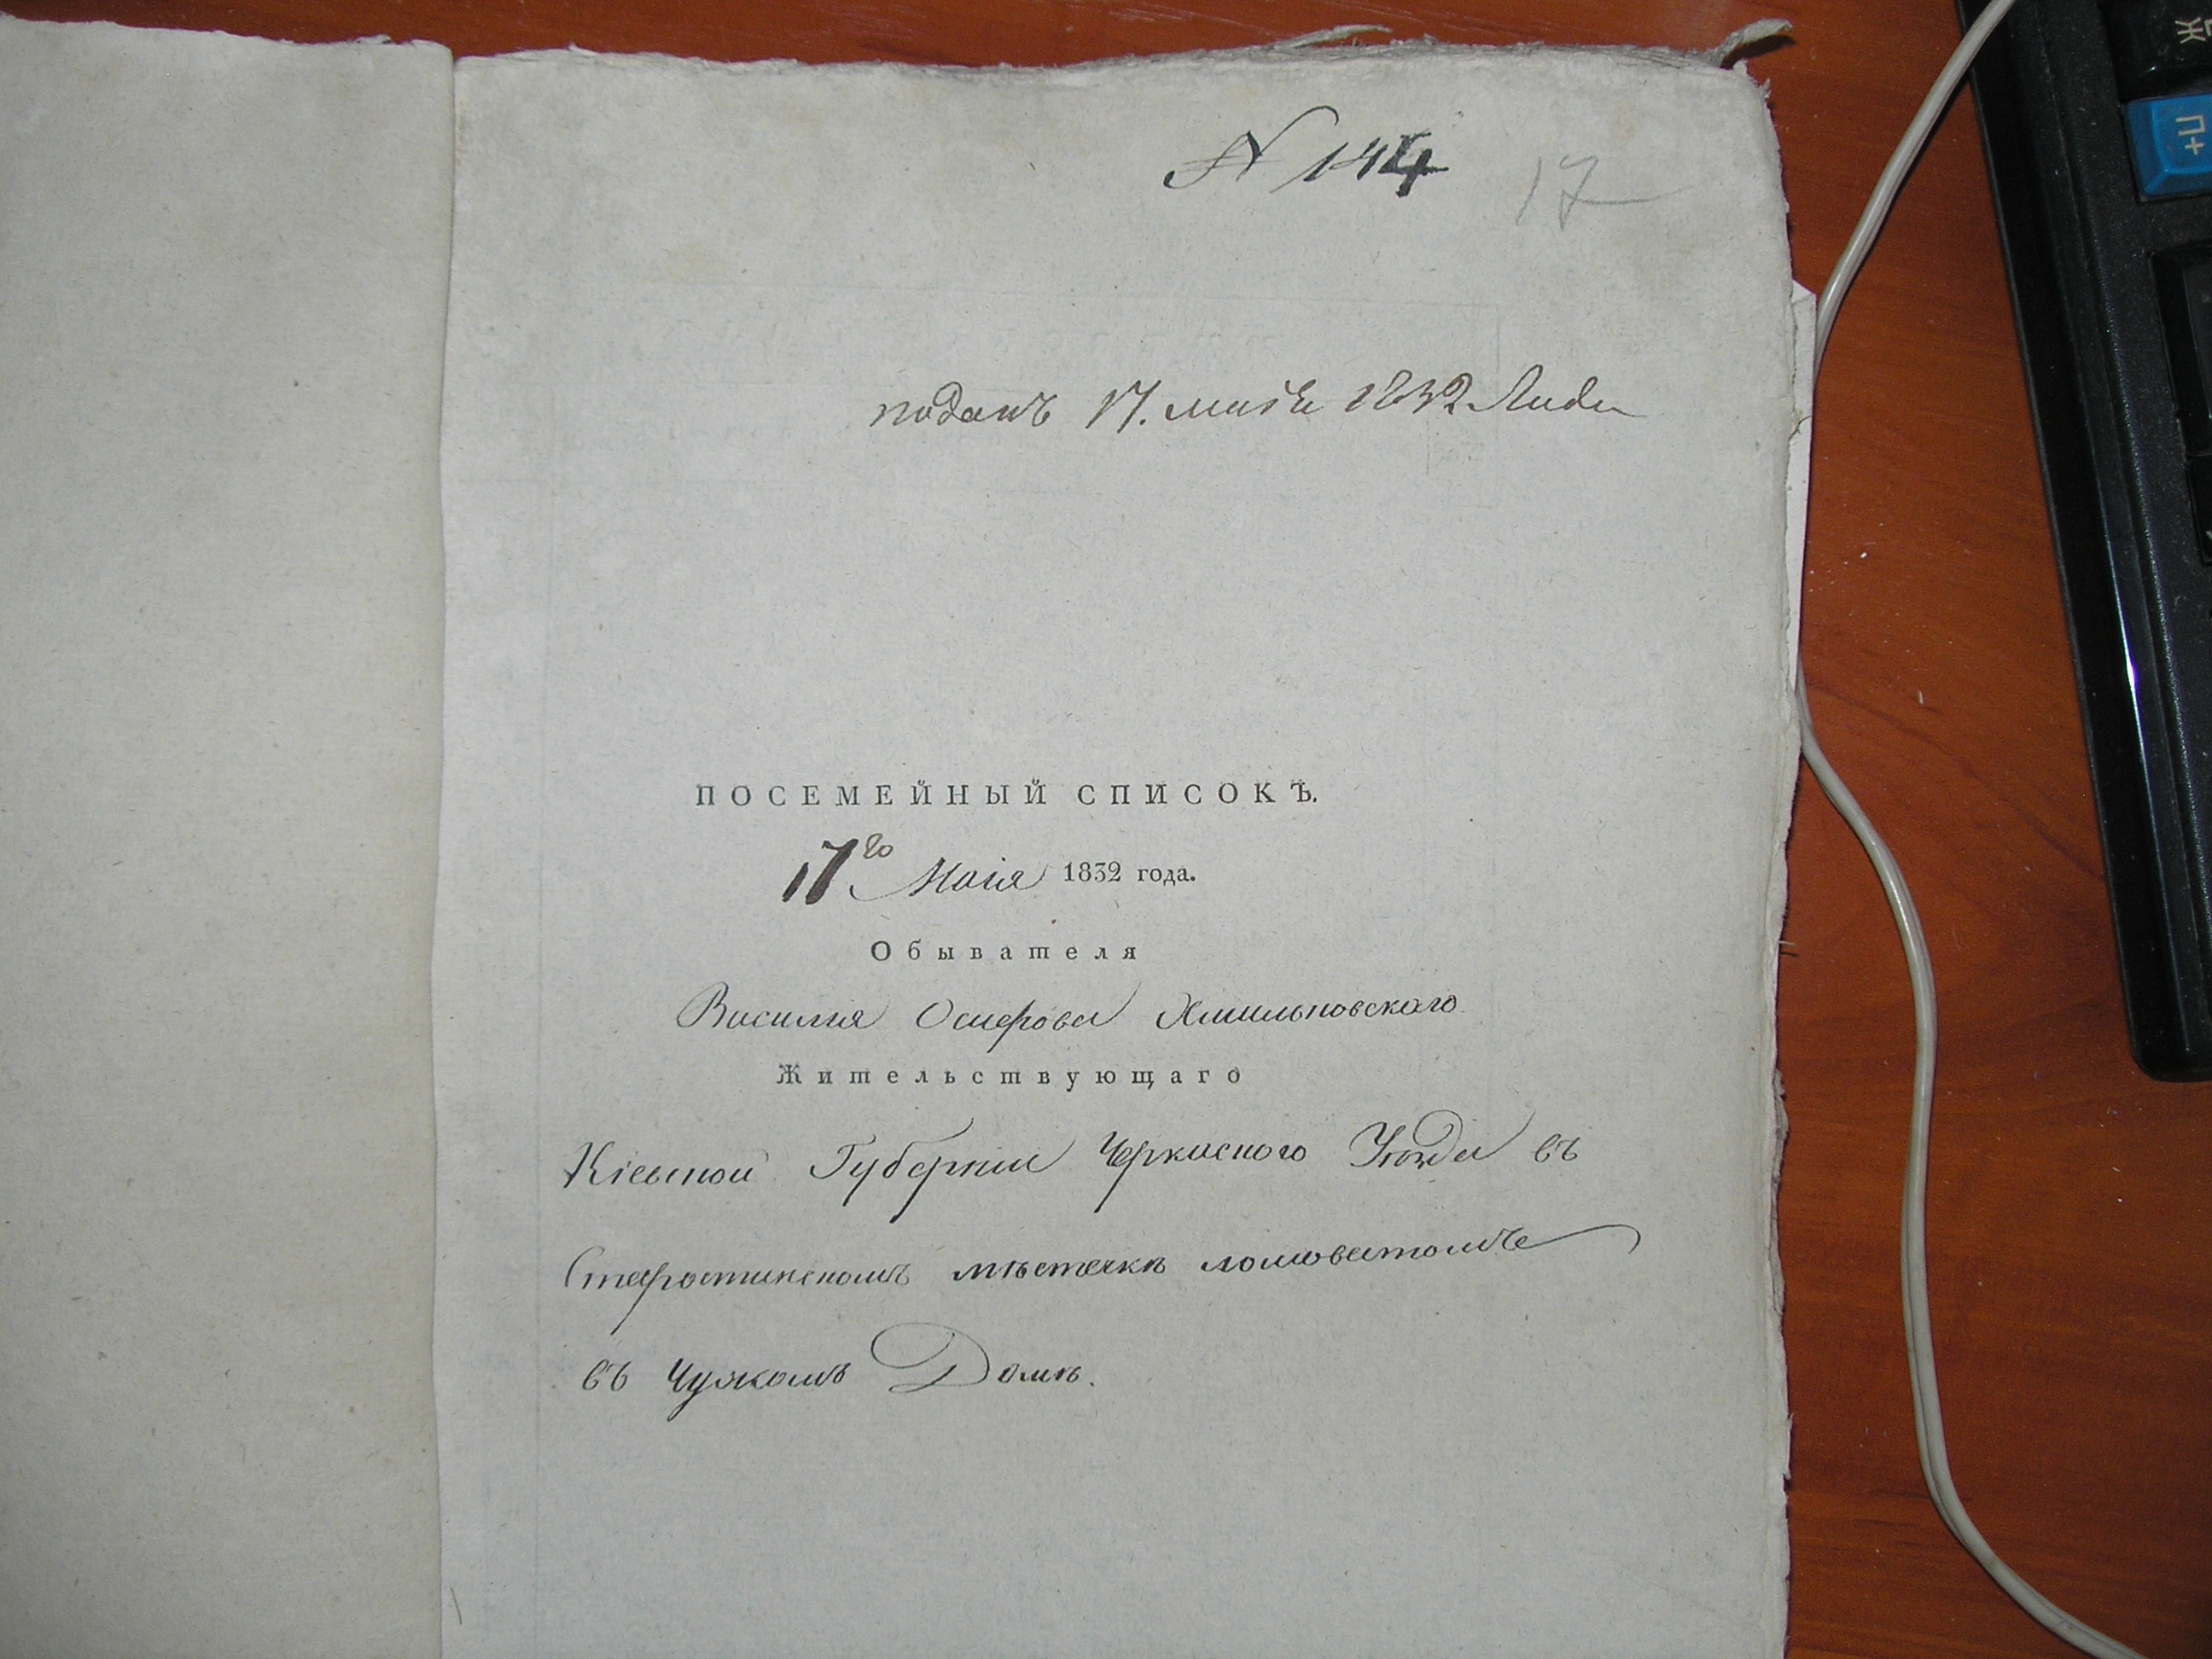 N 144 17
поданъ 17. маія 1832 года
ПОСЕМЕЙНЫЙ СПИСОКЪ.
17го Маія 1832 года.
Обывателя
Василия Осиерова Хмильновского
Жительствующаго
Кіевской Губернии Черкаского Уезда въ
Старостинскомъ местечкѣ ломоватомъ
въ Чужомъ Доме.
Ж
П+